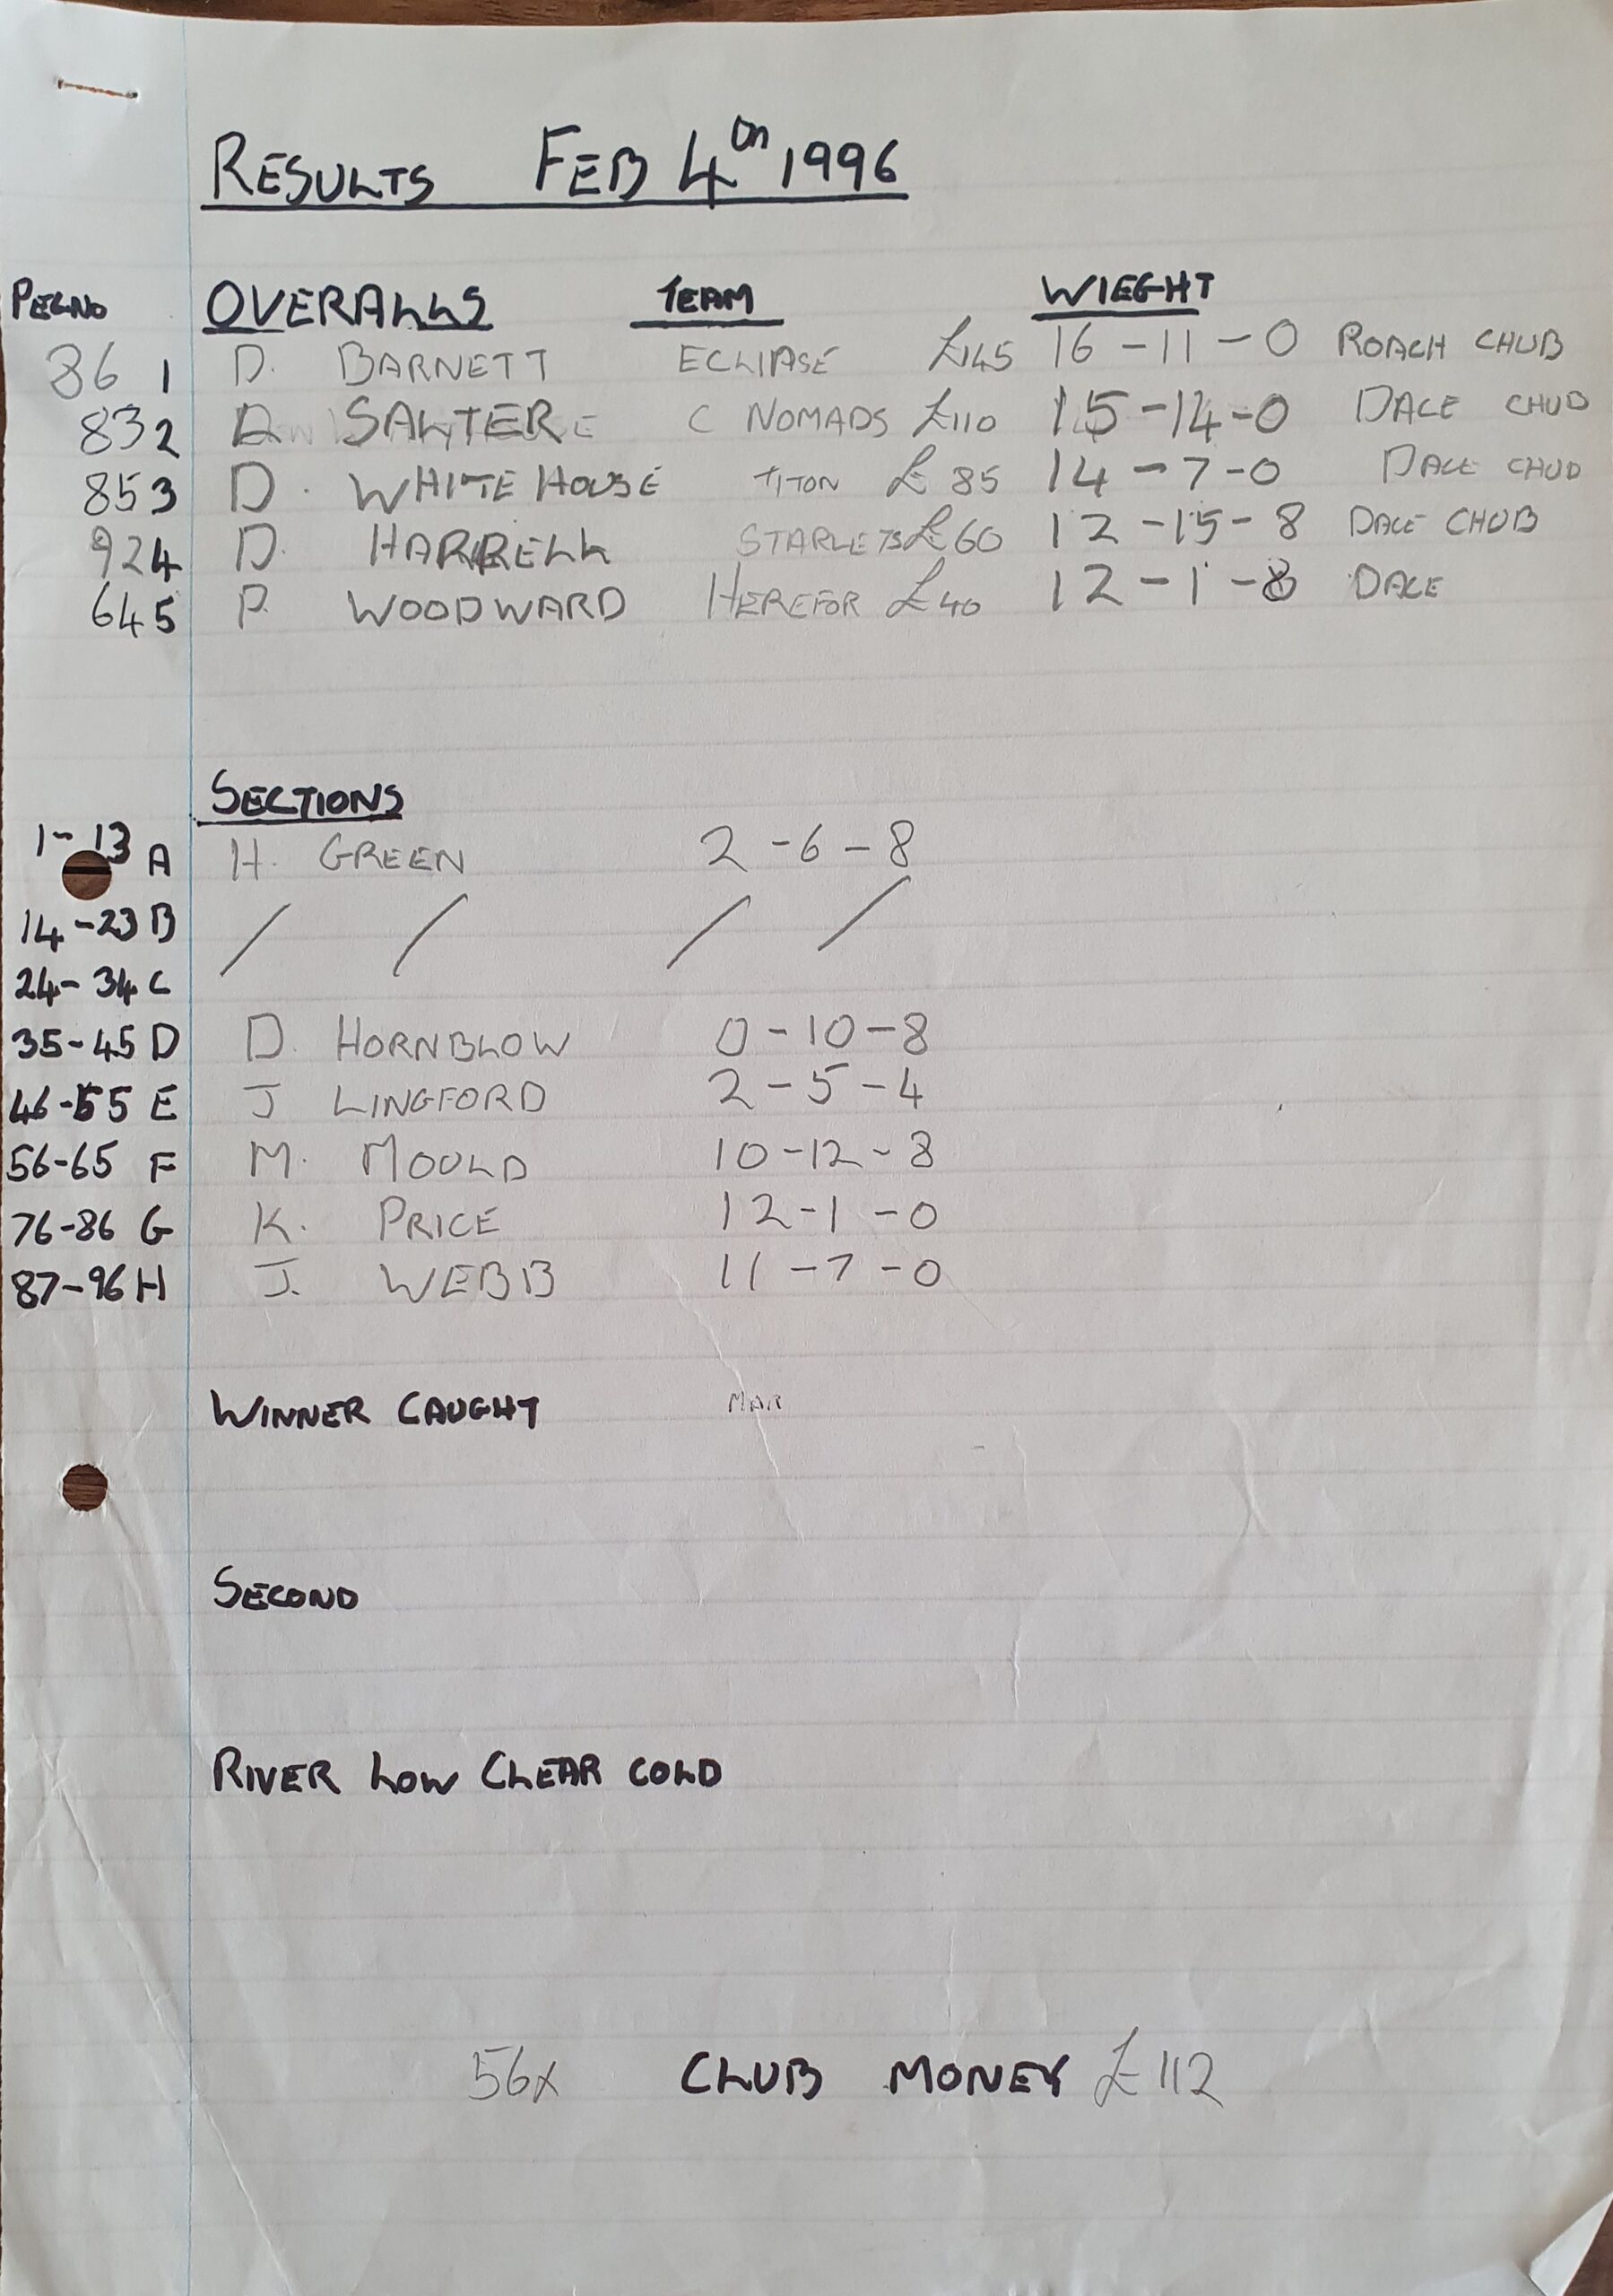 RESULTS FEB 4th 1996
PEGNO OVERALLS TEAM WIEGHT
86 1 D. BARNETT ECLIPSE £145 16-11-0 ROACH CHUB
83 2 SALTER C NOMADS £110 15-14-0 DACE CHUB
85 3 D. WHITEHOUSE TITON £85 14-7-0 DACE CHUB
92 4 D. HARRELL STARLETS £60 12-15-8 DACE CHUB
64 5 P. WOODWARD HEREFOR £40 12-1-8 DACE
SECTIONS
1-13 A H. GREEN 2-6-8
14-23 B / / / /
24-34 C
35-45 D D. HORNBLOW 0-10-8
46-55 E J LINGFORD 2-5-4
56-65 F M. MOULD 10-12-8
76-86 G K. PRICE 12-1-0
87-96 H J. WEBB 11-7-0
WINNER CAUGHT MAR
SECOND
RIVER LOW CLEAR COLD
56x CLUB MONEY £112